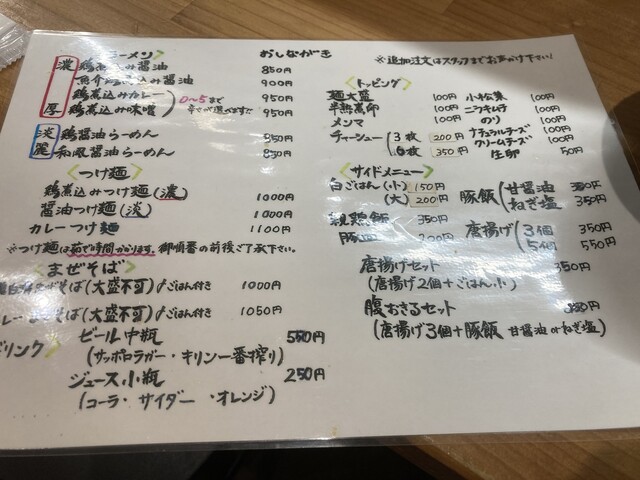 おしながき
※追加注文はスタッフまでお声かけ下さい!
ラーメン
濃厚
鶏煮込み醤油 850円
魚介鶏煮込み醤油 900円
鶏煮込みカレー 950円
鶏煮込み味噌 950円
0~5まで
辛さが選べます!!
淡麗
鶏醤油らーめん 850円
和風醤油らーめん 850円
<つけ麺>
鶏煮込みつけ麺(濃) 1000円
醤油つけ麺(淡) 1000円
カレーつけ麺 1100円
※つけ麺は茹で時間かかります。御順番の前後ご了承下さい。
<まぜそば>
そば(大盛不可)ごはん付き 1000円
カレー そば(大盛不可)ごはん付き 1050円
ドリンク
ビール中瓶 550円
(サッポロラガー・キリン一番搾り)
ジュース小瓶 250円
(コーラ・サイダー・オレンジ)
<トッピング>
麺大盛 100円
半熟煮卵 100円
メンマ 100円
チャーシュー 3枚 200円
6枚 350円
小松菜 100円
ニラキムチ 100円
のり 100円
ナチュラルチーズ 100円
クリームチーズ 100円
生卵 50円
<サイドメニュー>
白ごはん(小) 150円
(大) 200円
親鶏飯 350円
豚皿
豚飯 甘醤油 350円
ねぎ塩 350円
唐揚げ 3個 350円
5個 550円
唐揚げセット 350円
(唐揚げ2個+ごはん小)
腹おさるセット
(唐揚げ3個+豚飯 甘醤油 orねぎ塩)